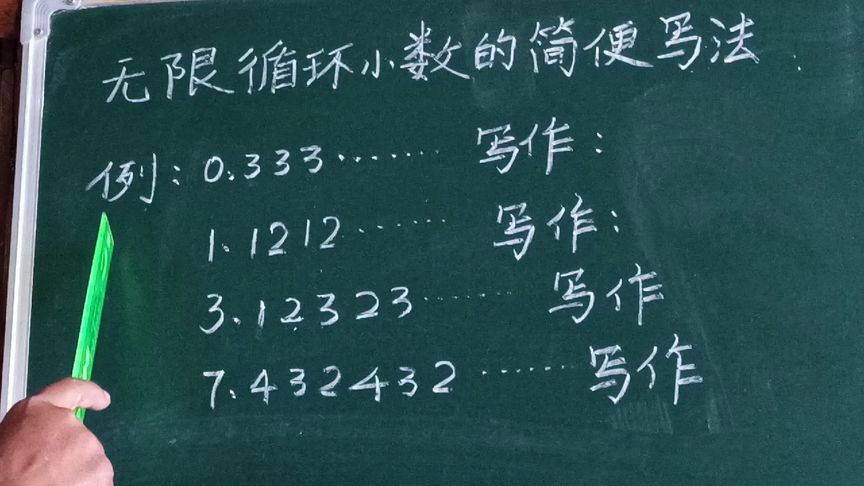 无限循环小数的简便写法
例:0.333…… 写作:
1.1212…… 写作:
3.12323…… 写作
7.432432…… 写作